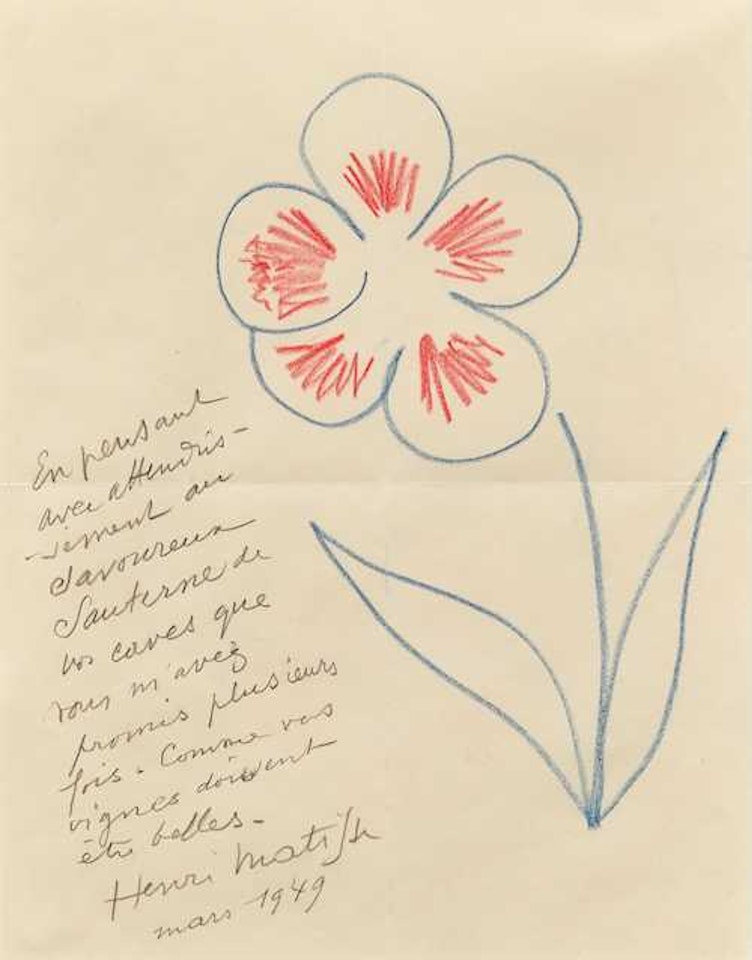 En pensant
avec attendris-
-sement au
savoureux
Sauterne de
vos caves que
vous m'avez
promis plusieurs
fois. Comme vos
vignes doivent
être belles.-
Henri Matisse
mars 1949